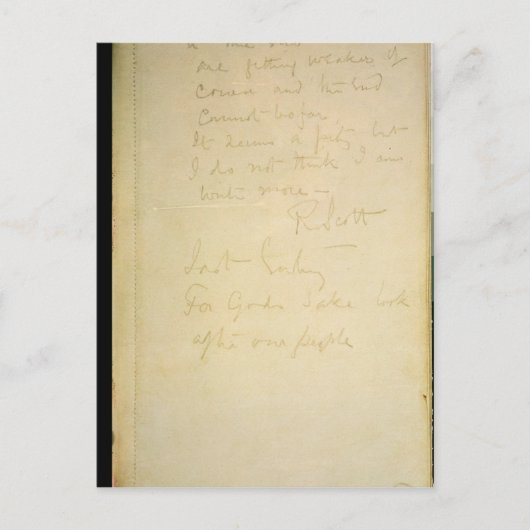 are getting weaker of
course and the end
cannot be far.
It seems a pity but
I do not think I can
write more —
R. Scott
Last Entry
For Gods sake look
after our people